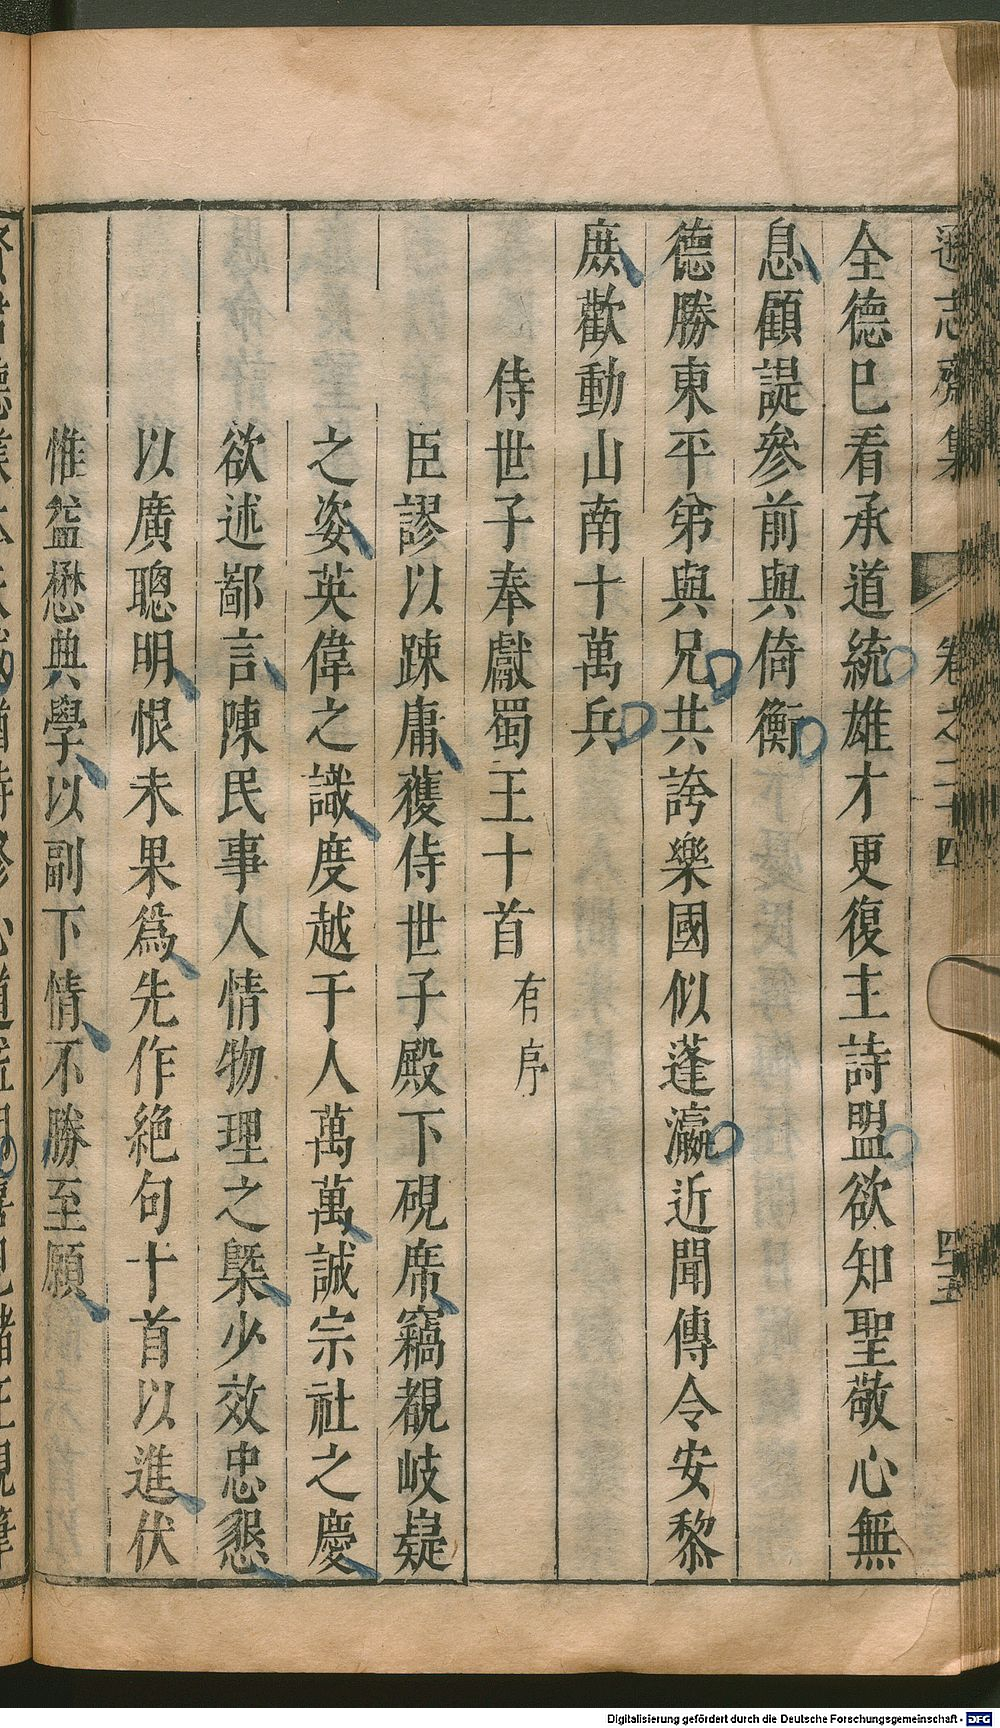 遜志齋集 卷之二十四 四五
全德已看承道統雄才更復主詩盟欲知聖敬心無
息顧諟參前與倚衡
德勝東平弟與兄共誇樂國似蓬瀛近聞傳令安黎
庶歡動山南十萬兵
侍世子奉獻蜀王十首 有序
臣謬以踈庸獲侍世子殿下硯席竊覩岐嶷
之姿英偉之識度越于人萬萬誠宗社之慶
欲述鄙言陳民事人情物理之槩少效忠懇
以廣聰明恨未果爲先作絶句十首以進伏
惟益懋典學以副下情不勝至願
Digitalisierung gefördert durch die Deutsche Forschungsgemeinschaft - DFG